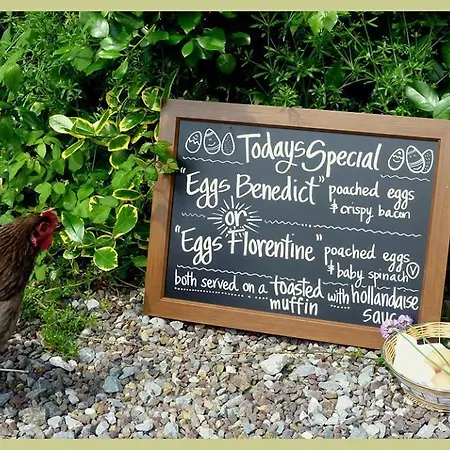 Todays Special
"Eggs Benedict" poached eggs
& crispy bacon
or
"Eggs Florentine" poached eggs
& baby spinach V
both served on a toasted muffin with hollandaise sauce